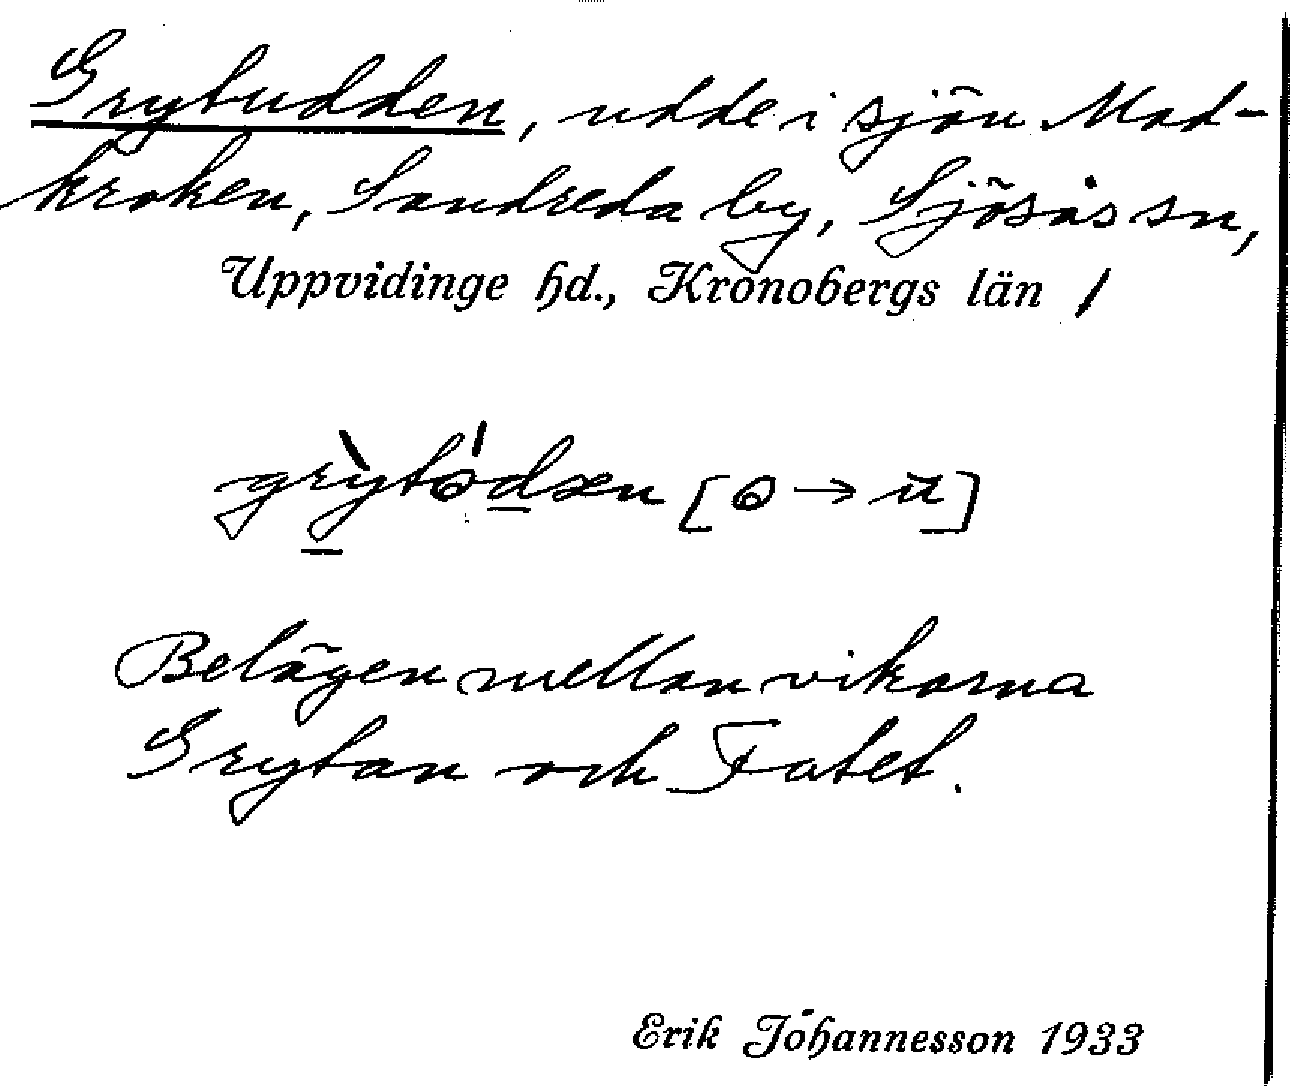 Grytudden, udde i sjön Mad-
kroken, Sandreda by, Sjösås sn,
Uppvidinge hd., Kronobergs län
Belägen mellan vikarna
Grytan och Fatet.
Erik Johannesson 1933